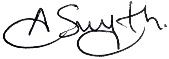 A Smyth.